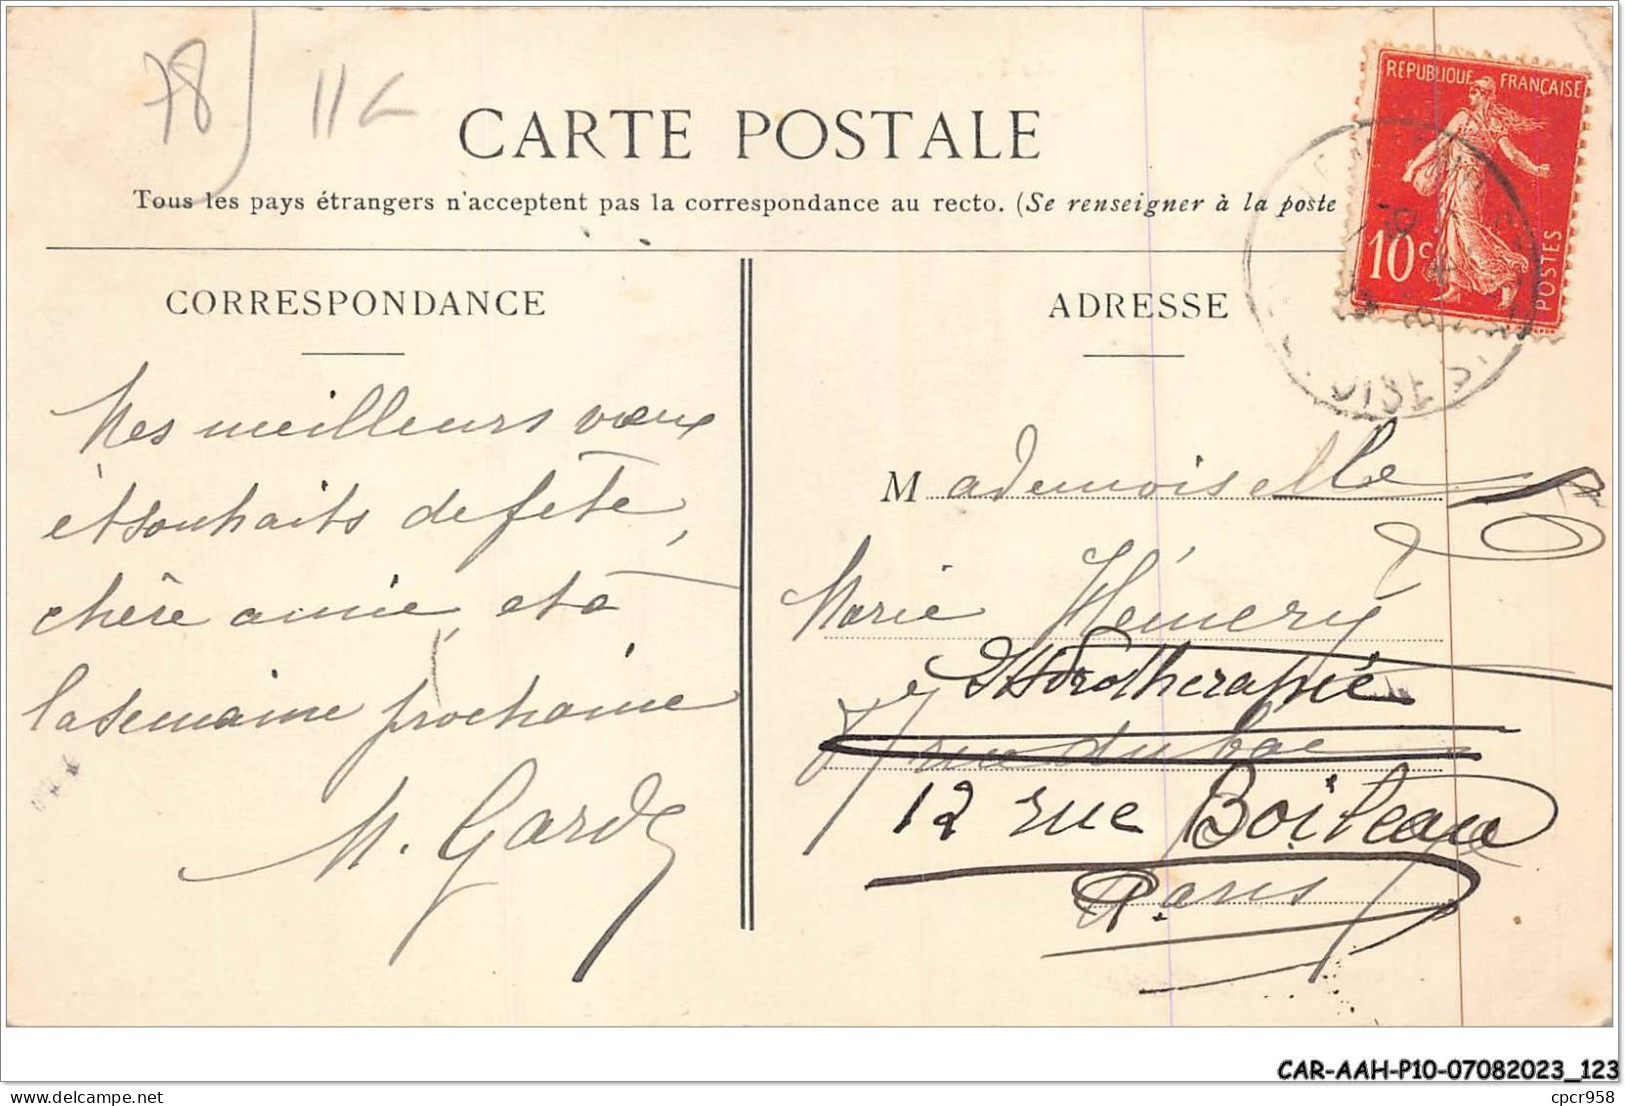 78 11c
CARTE POSTALE
Tous les pays étrangers n'acceptent pas la correspondance au recto. (Se renseigner à la poste
REPUBLIQUE FRANÇAISE
10c
POSTES
OISE
CORRESPONDANCE
Mes meilleurs vœux
et souhaits de fête,
chère amie, et à
la semaine prochaine
M. Garde
ADRESSE
Mademoiselle
Marie Hémery
Hydrotherapie
rue du bac
12 rue Boileau
Paris
CAR-AAH-P10-07082023_123
delcampe.net
cpcr958